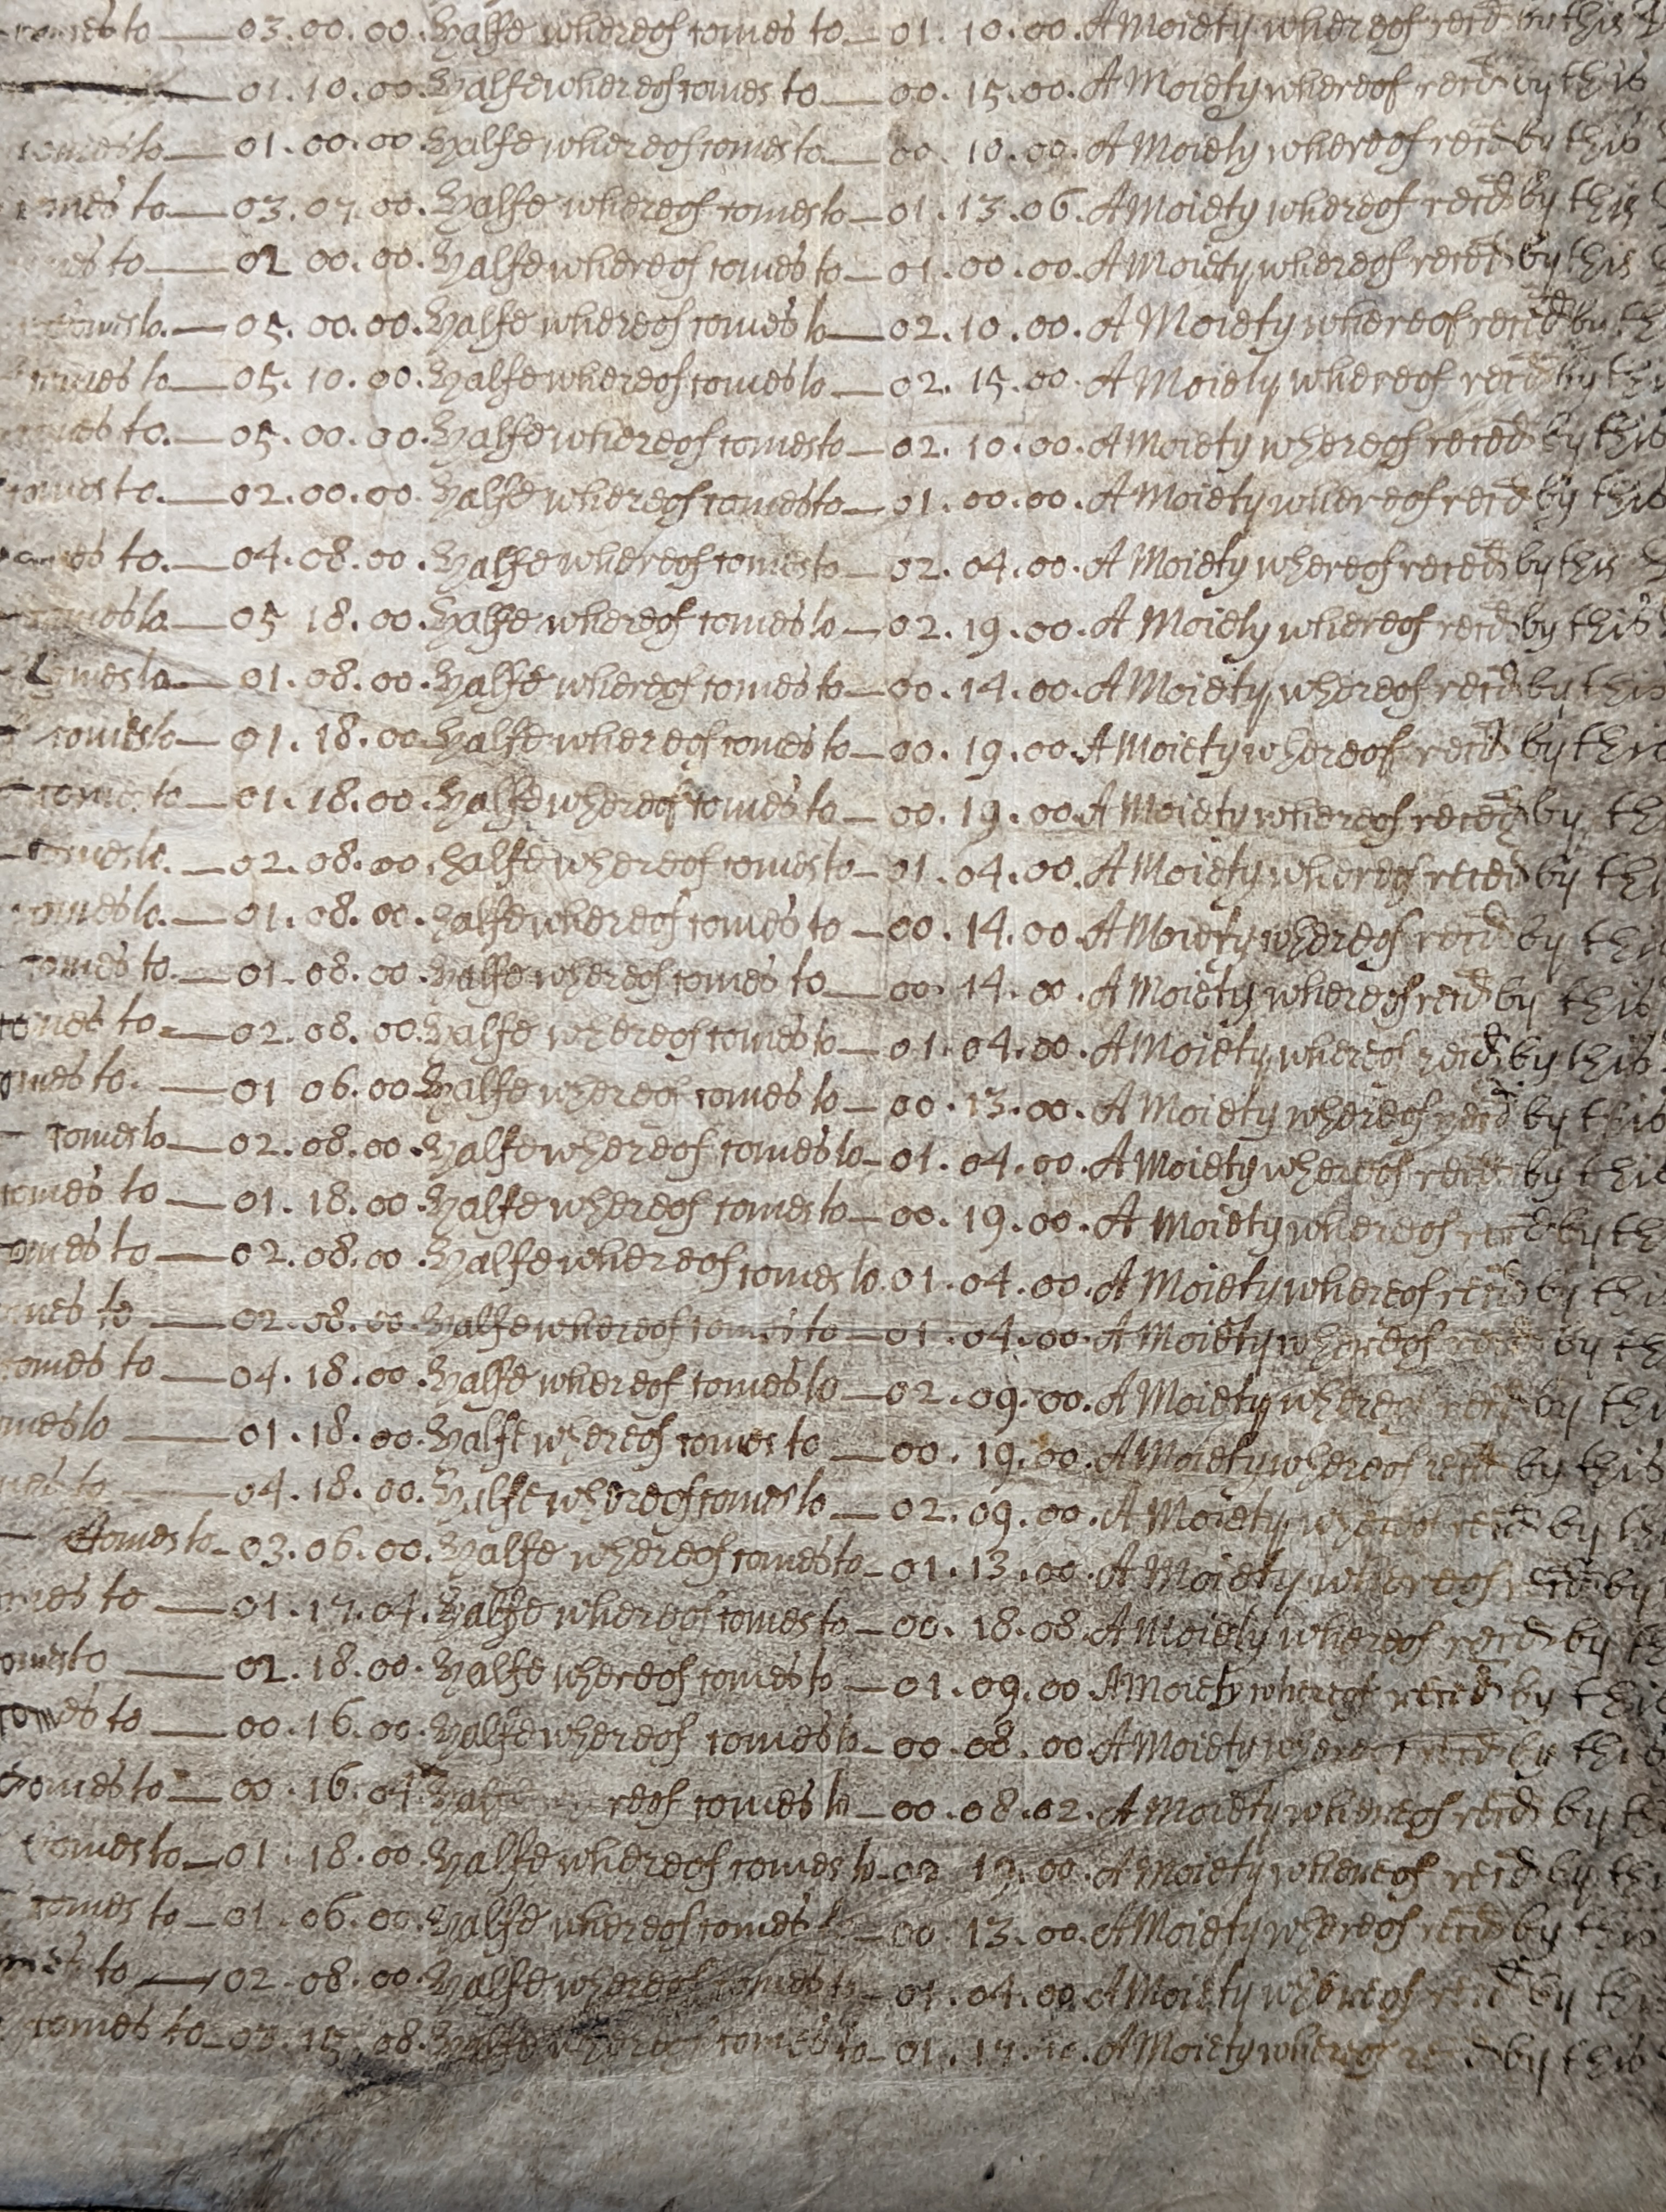 comes to — 03. 00. 00. Halfe whereof comes to — 01. 10. 00. A Moiety whereof recd by this
— 01. 10. 00. Halfe whereof comes to — 00. 15. 00. A Moiety whereof recd by this
comes to — 01. 00. 00. Halfe whereof comes to — 00. 10. 00. A Moiety whereof recd by this
comes to — 03. 07. 00. Halfe whereof comes to — 01. 13. 06. A Moiety whereof recd by this
es to — 02 00. 00. Halfe whereof comes to — 01. 00. 00. A Moiety whereof reced by this
comes to. — 05. 00. 00. Halfe whereof comes to — 02. 10. 00. A Moiety whereof recd by th
comes to — 05. 10. 00. Halfe whereof comes to — 02. 15. 00. A Moiety whereof recd by thi
omes to. — 05. 00. 00. Halfe whereof comes to — 02. 10. 00. A Moiety whereof reced by this
comes to. — 02. 00. 00. Halfe whereof comes to — 01. 00. 00. A Moiety whereof recd by this
es to. — 04. 08. 00. Halfe whereof comes to — 02. 04. 00. A Moiety whereof reced by this
comes to — 05 18. 00. Halfe whereof comes to — 02. 19. 00. A Moiety whereof recd by this
comes to — 01. 08. 00. Halfe whereof comes to — 00. 14. 00. A Moiety whereof recd by this
comes to — 01. 18. 00 Halfe whereof comes to — 00. 19. 00. A Moiety whereof recd by this
comes to — 01. 18. 00. Halfe whereof comes to — 00. 19. 00. A Moiety whereof reced by th
comes to. — 02. 08. 00. halfe whereof comes to — 01. 04. 00. A Moiety whereof reced by thi
comes to. — 01. 08. 00. halfe whereof comes to — 00. 14. 00. A Moiety whereof recd by thi
comes to. — 01. 08. 00. Halfe whereof comes to — 00. 14. 00. A Moiety whereof recd by this
comes to. — 02. 08. 00. Halfe whereof comes to — 01. 04. 00. A Moiety whereof recd by this
omes to. — 01 06. 00 Halfe whereof comes to — 00. 13. 00. A Moiety whereof recd by this
— comes to — 02. 08. 00. Halfe whereof comes to — 01. 04. 00. A Moiety whereof recd by this
comes to — 01. 18. 00. Halfe whereof comes to — 00. 19. 00. A Moiety whereof recd by th
omes to — 02. 08. 00. Halfe whereof comes to. 01. 04. 00. A Moiety whereof recd by thi
mes to — 02. 08. 00. Halfe whereof comes to — 01. 04. 00. A Moiety whereof by th
omes to — 04. 18. 00. Halfe whereof comes to — 02. 09. 00. A Moiety whereof recd by thi
mes to — 01. 18. 00. Halfe whereof comes to — 00. 19. 00. A Moiety whereof recd by this
mes to — 04. 18. 00. Halfe whereof comes to — 02. 09. 00. A Moiety whereof recd by thi
— Comes to — 03. 06. 00. Halfe whereof comes to — 01. 13. 00. A Moiety whereof recd by
mes to — 01. 17. 04. Halfe whereof comes to — 00. 18. 08. A Moiety whereof recd by th
omes to — 02. 18. 00. Halfe whereof comes to — 01. 09. 00 A Moiety whereof recd by this
comes to — 00. 16. 00. Halfe whereof comes to — 00. 08. 00. A Moiety whereof recd by this
comes to — 00. 16. 04. Half reof comes to — 00. 08. 02. A Moiety whereof recd by th
comes to — 01. 18. 00. Halfe whereof comes to — 19. 00. A Moiety whereof recd by thi
comes to — 01. 06. 00. Halfe whereof comes to — 00. 13. 00. A Moiety whereof recd by thi
to — 02. 08. 00. Halfe whereof comes to — 01. 04. 00. A Moiety whereof recd by thi
comes to — 03. 15. 08. Halfe whereof comes to — 01. 17. A Moiety whereof by this